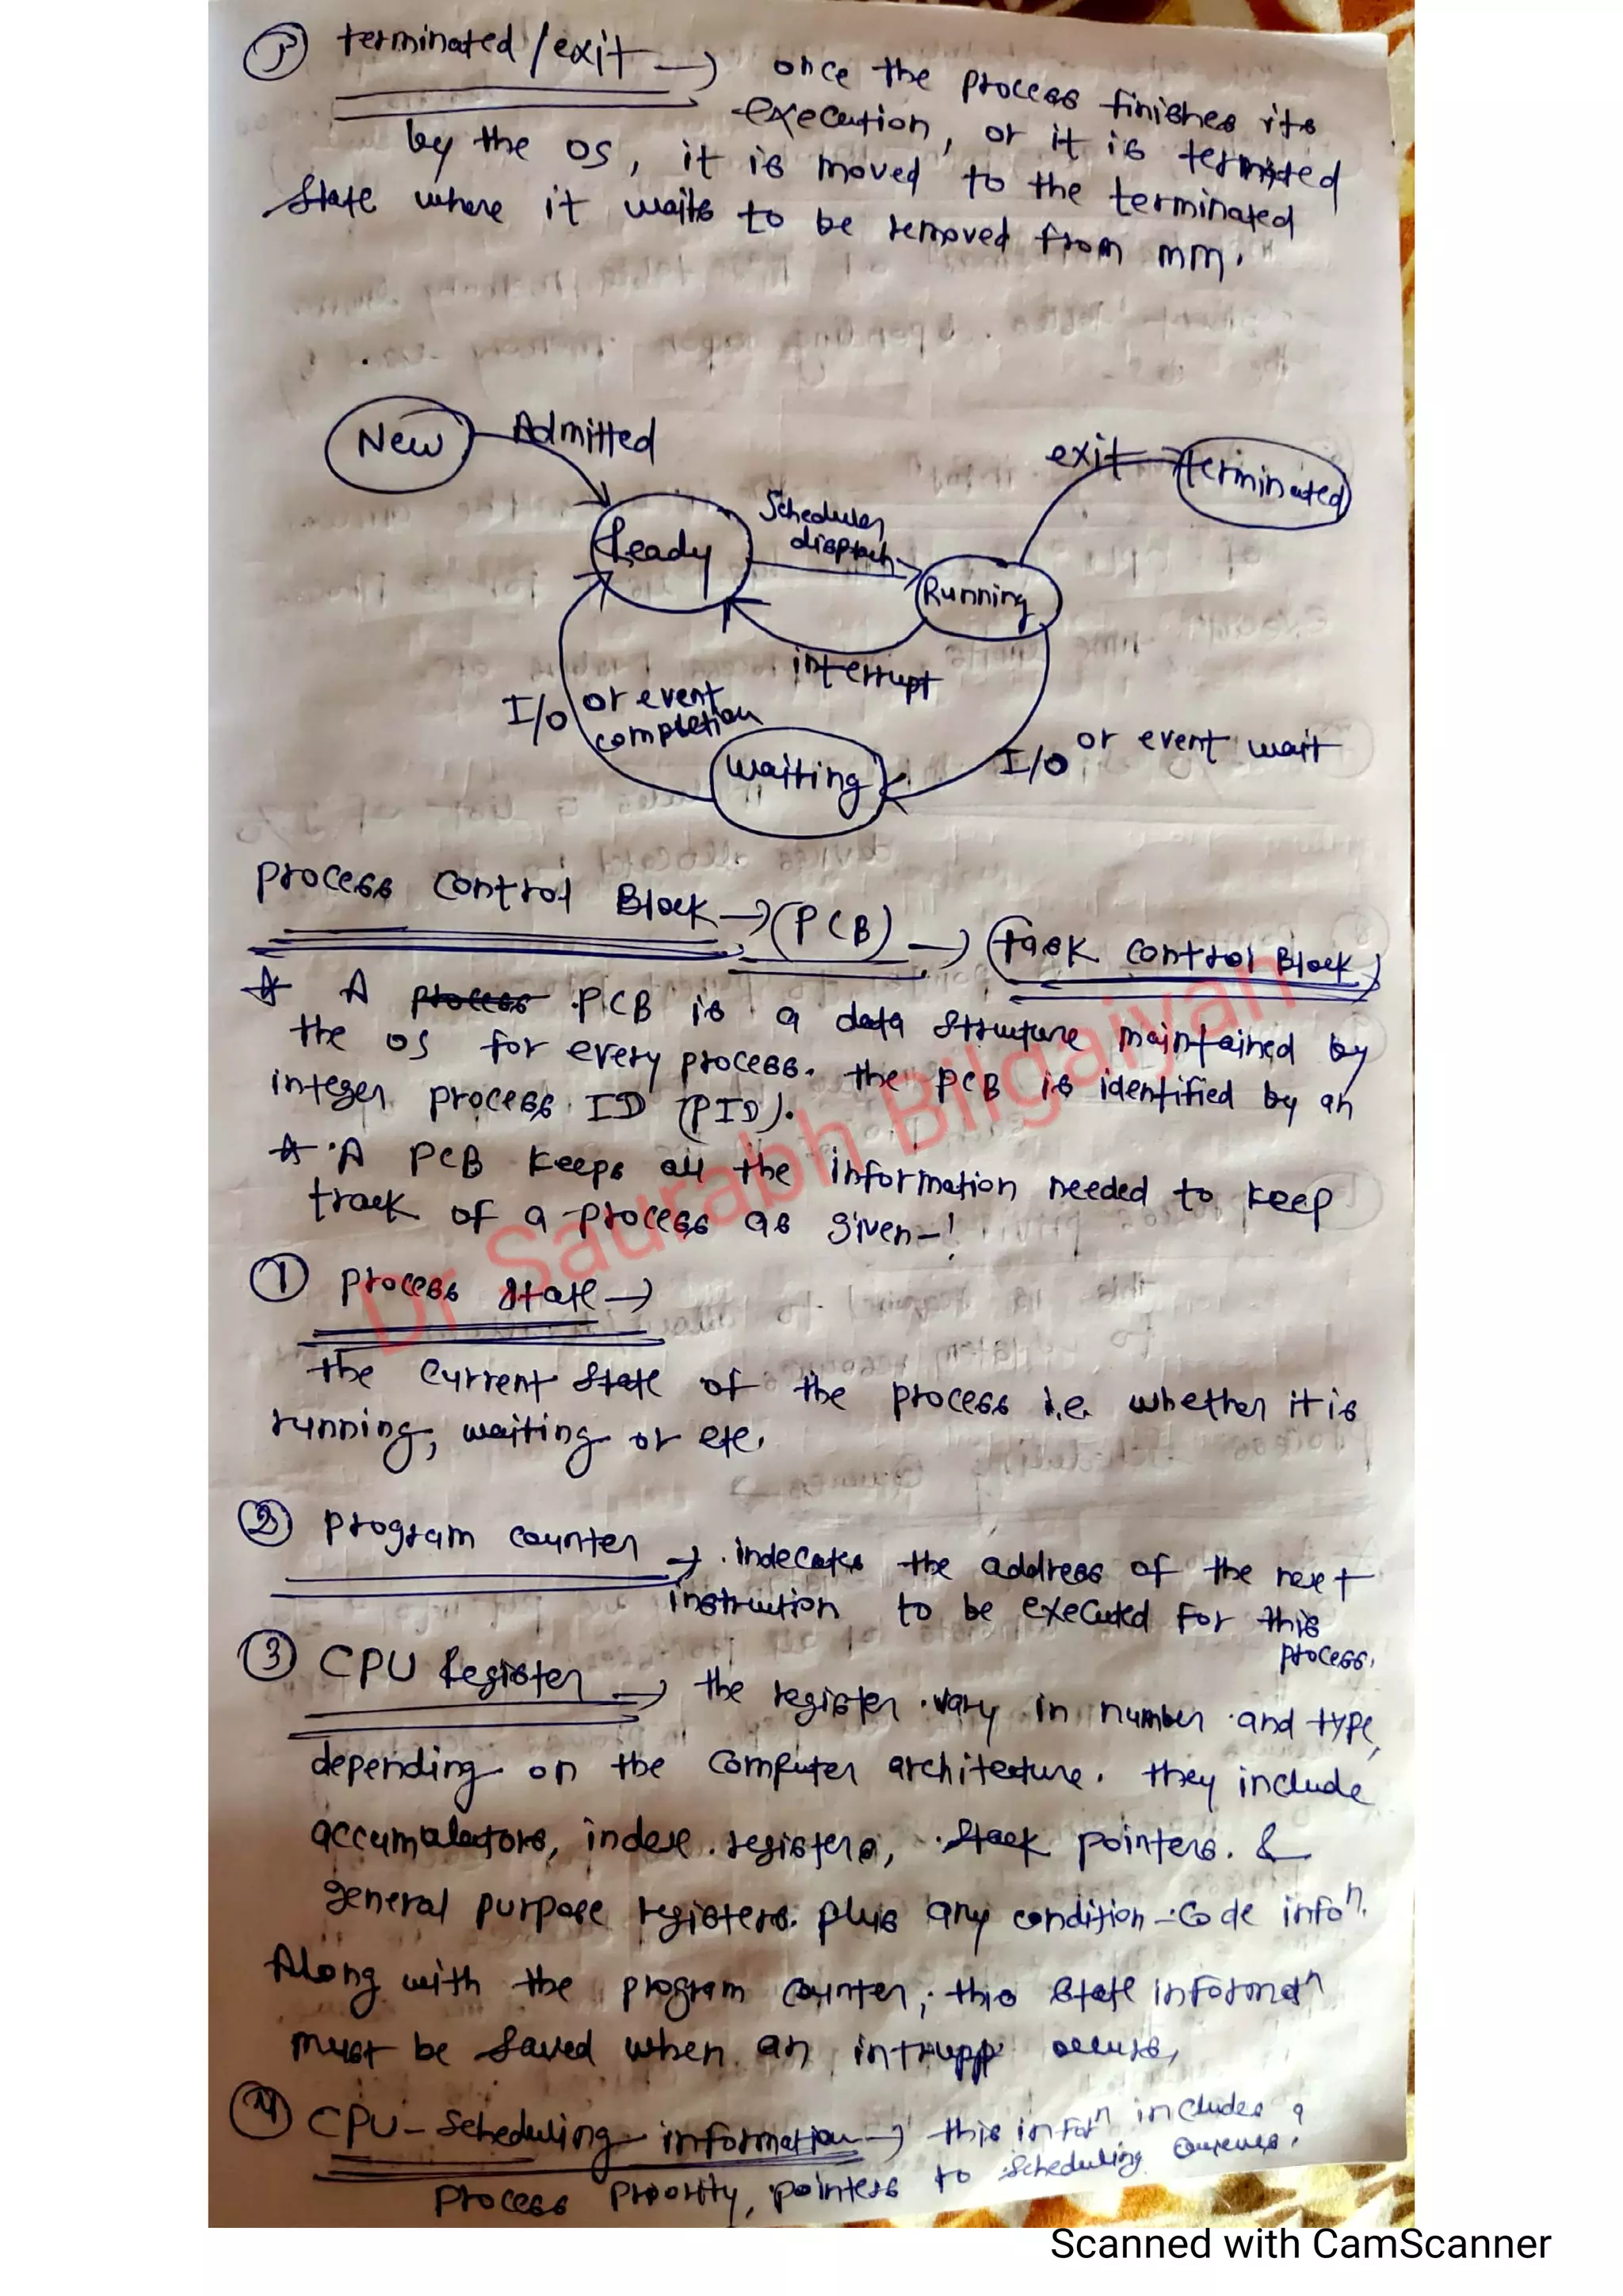 ⑤ terminated/exit → once the process finishes its
execution, or it is termited
by the OS, it is moved to the terminated
state where it waits to be removed from mm.
New
Admitted
exit
terminated
Scheduler
dispatch
Ready
Running
interrupt
I/O or event
completion
waiting
I/O or event wait
process control Block → (PCB) → (Task control Block)
☆ A process PCB is a data structure maintained by
the OS for every process. the PCB is identified by an
integer process ID (PID).
☆ A PCB keeps all the information needed to keep
track of a process as given-!
① process state →
the current state of the process i.e. whether it is
running, waiting or etc.
② program counter → indecates the address of the next
instruction to be executed for this
process.
③ CPU Register → the register vary in number and type,
depending on the computer architecture. they include
accumalators, index registers, stack pointers &
general purpose registers. plus any condition-code infoⁿ.
Along with the program counter, this state informatⁿ
must be saved when an intrupp occurs,
④ CPU-scheduling information → this infoⁿ includes a
process priority, pointers to scheduling queues.
Dr Saurabh Bilgaiyan
Scanned with CamScanner